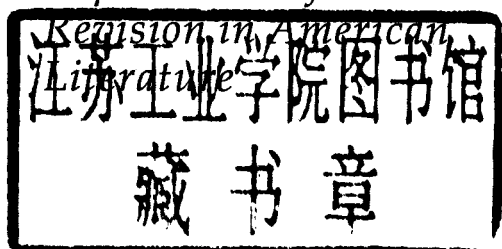 Revision in American
Literature
江苏工业学院图书馆
藏书章